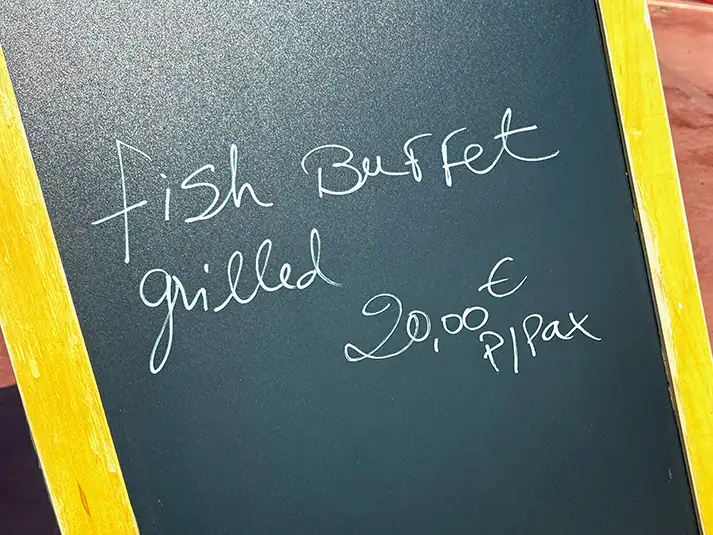 Fish Buffet
grilled
20,00 €
P/Pax